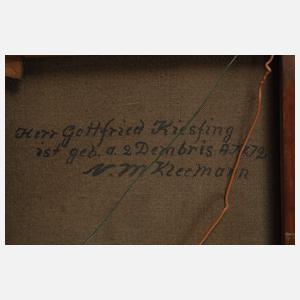 Herr Gottfried Kiesling
ist geb. a. 2 Dembris A.
N. M Kleemann